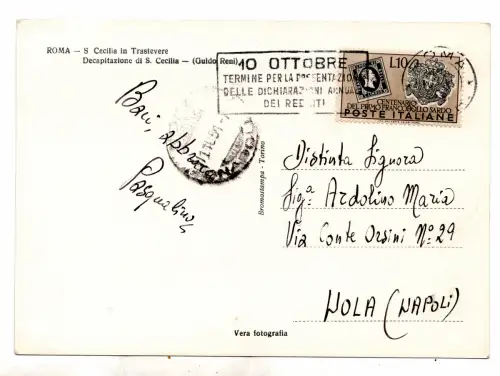 ROMA — S Cecilia in Trastevere
Decapitazione di S. Cecilia — (Guido Reni)
10 OTTOBRE
TERMINE PER LA PRESENTAZIONE
DELLE DICHIARAZIONI ANNUALI
DEI REDDITI
L.10
CENTENARIO
DEL PRIMO FRANCOBOLLO SARDO
POSTE ITALIANE
Baci, abbracci
Pasqualino
Bromostampa - Torino
Distinta Signora
Sig.ª Ardolino Maria
Via Conte Orsini Nº 29
NOLA (NAPOLI)
Vera fotografia